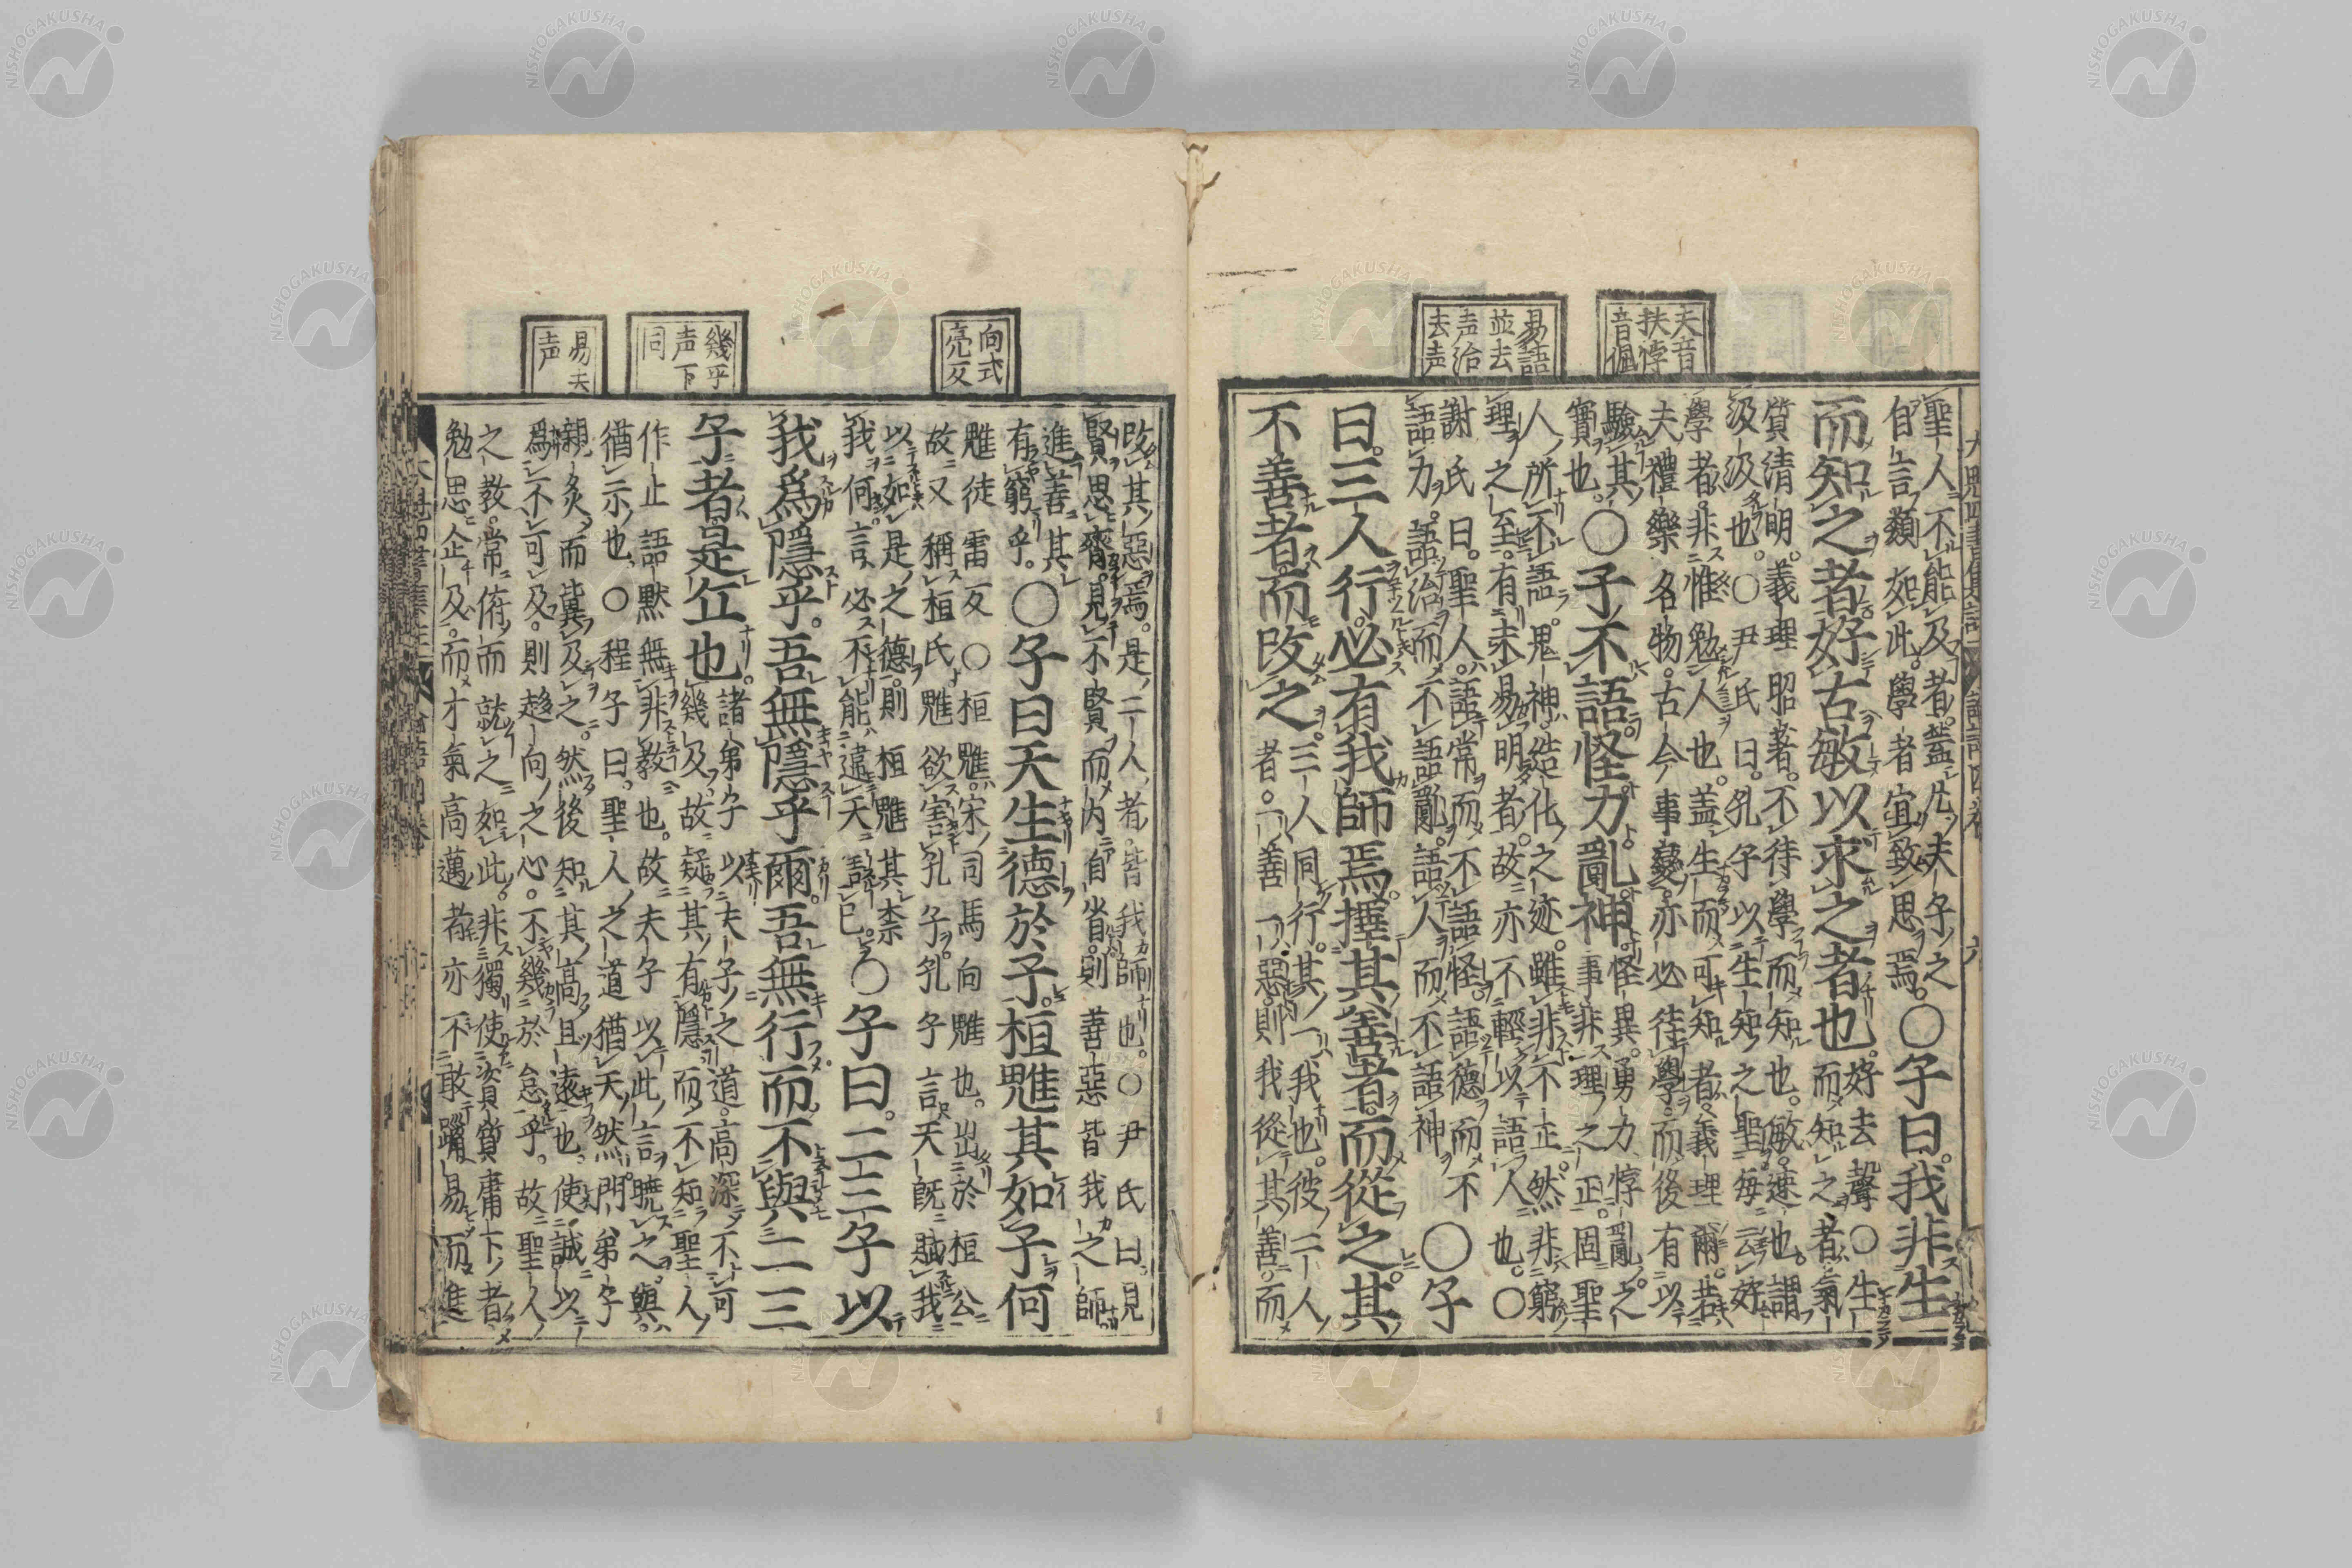 夫音
扶悖
音佩
易語
並去
声治
去声
聖人不能及者。蓋凡夫子之
自言類如此。學者宜致思焉。
○子曰。我非生
而知之者。好古敏以求之者也。
好去聲○生
而知之者。氣
質清明。義理昭著。不待學而知也。敏。速也。謂
汲汲也。○尹氏曰。孔子以生知之聖。每云好
學者。非惟勉人也。蓋生而可知者。義理爾。若
夫禮樂名物。古今事變。亦必待學。而後有以
驗其
實也。
○子不語怪力亂神
怪異。勇力悖亂之
事。非理之正。固聖
人所不語。鬼神造化之迹。雖非不正。然非窮
理之至。有未易明者。故亦不輕以語人也。○
謝氏曰。聖人。語常而不語怪。語德而不
語力。語治而不語亂。語人而不語神
○子
曰。三人行。必有我師焉。擇其善者。而從之。其
不善者。而改之。
三人同行。其一我也。彼二人
者。一善一惡。則我從其善。而
向式
亮反
幾乎
声下
同
易去
声
改其惡焉。是二人者。皆我師也。○尹氏曰。見
賢思齊。見不賢而内自省。則善惡皆我之師
進善其
有窮乎。
○子曰天生德於予。桓魋其如予何
魋徒雷反○桓魋。宋司馬向魋也。出於桓公
故又稱桓氏。魋欲害孔子。孔子言天既賦我
以如是之德。則桓魋其柰
我何。言必不能違天害己。
○子曰。二三子以
我爲隱乎。吾無隱乎爾。吾無行而不與二三
子者。是丘也。
諸弟子以夫子之道。高深不可
幾及。故疑其有隱。而不知聖人
作止語默無非教也。故夫子以此言曉之。與。
猶示也。○程子曰。聖人之道猶天然。門弟子
親炙而冀及之。然後知其高且遠也。使誠以
爲不可及。則趨向之心。不幾於怠乎。故聖人
之教。常俯而就之如此。非獨使資質庸下者
勉思企及。而才氣高邁者亦不敢躐易而進